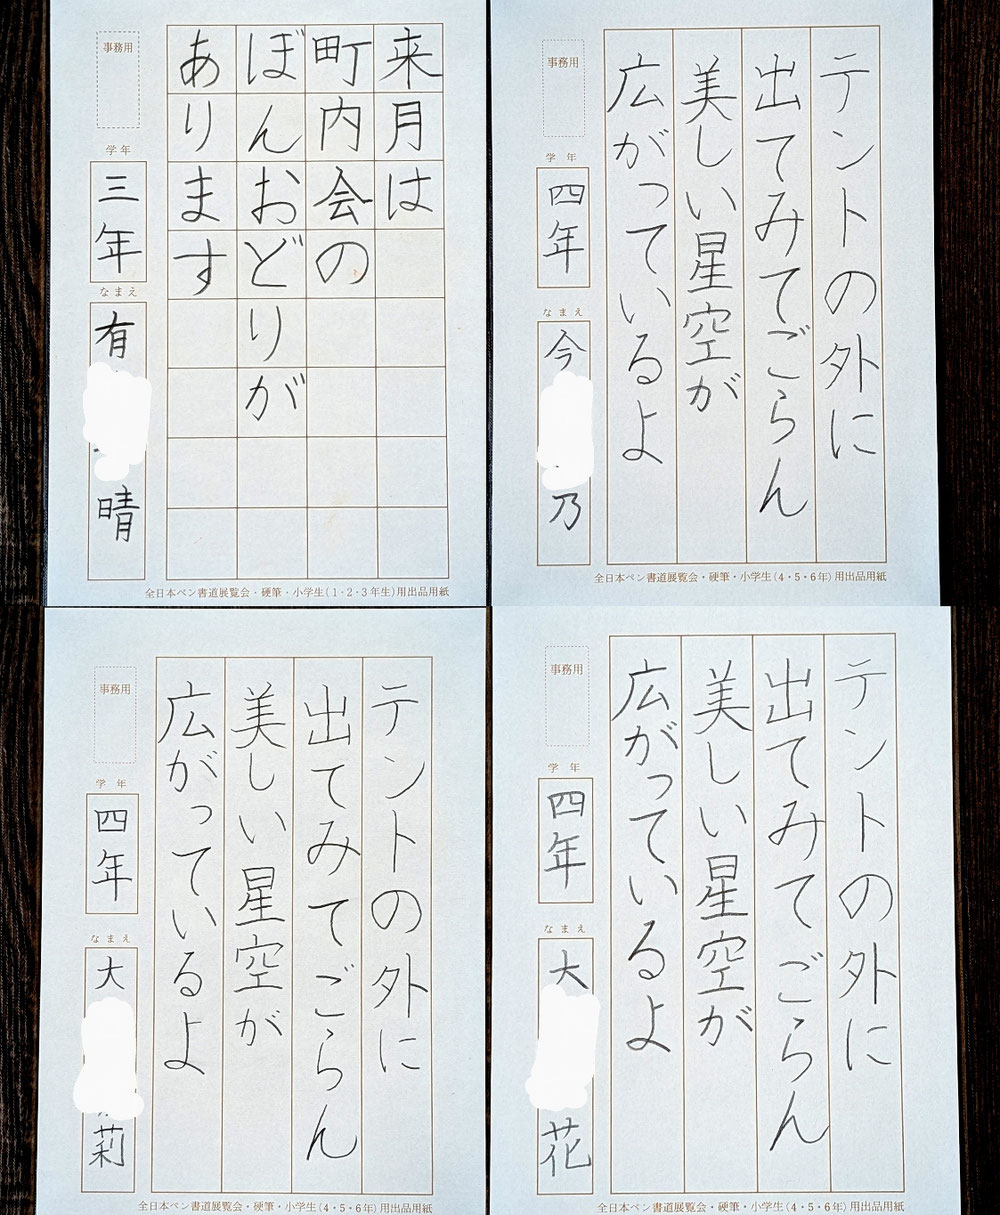 来月は
町内会の
ぼんおどりが
あります
事務用
学年
三年
なまえ
有
晴
全日本ペン書道展覧会・硬筆・小学生(1・2・3年生)用出品用紙
テントの外に
出てみてごらん
美しい星空が
広がっているよ
事務用
学年
四年
なまえ
今
乃
全日本ペン書道展覧会・硬筆・小学生(4・5・6年)用出品用紙
テントの外に
出てみてごらん
美しい星空が
広がっているよ
事務用
学年
四年
なまえ
大
莉
全日本ペン書道展覧会・硬筆・小学生(4・5・6年)用出品用紙
テントの外に
出てみてごらん
美しい星空が
広がっているよ
事務用
学年
四年
なまえ
大
花
全日本ペン書道展覧会・硬筆・小学生(4・5・6年)用出品用紙